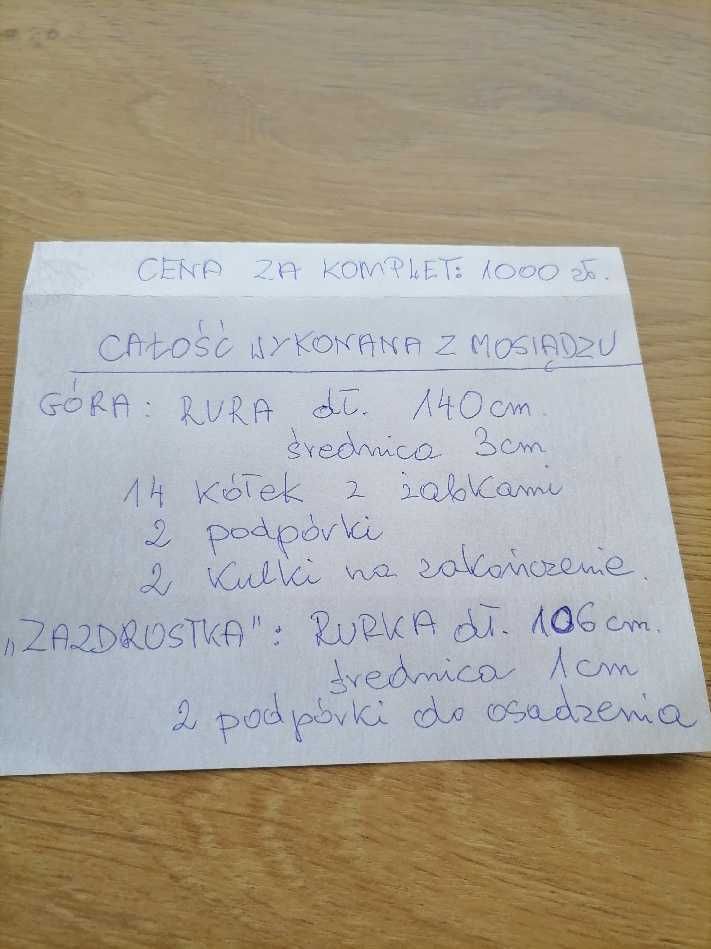 CENA ZA KOMPLET: 1000 zł.
CAŁOŚĆ WYKONANA Z MOSIĄDZU
GÓRA: RURA dł. 140 cm.
średnica 3cm
14 kółek z żabkami
2 podpórki
2 kulki na zakończenie.
„ZAZDROSTKA": RURKA dł. 106 cm.
średnica 1cm
2 podpórki do osadzenia